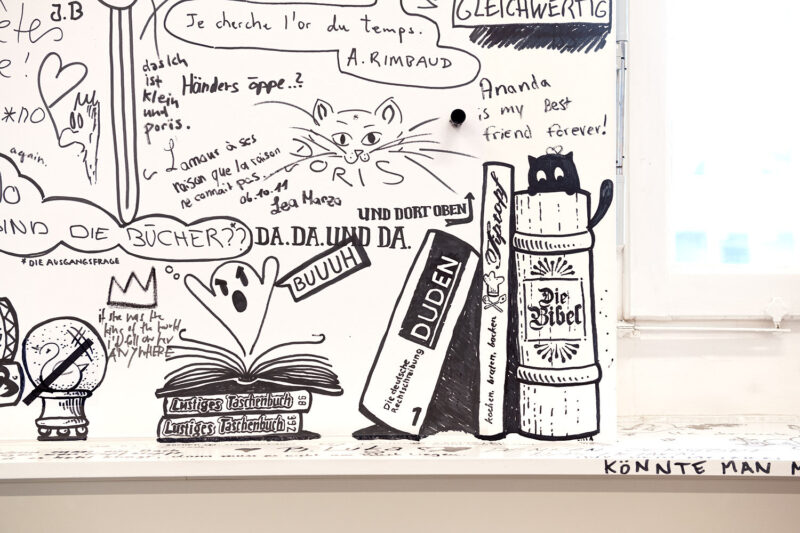 J.B
Je cherche l'or du temps.
A. RIMBAUD
GLEICHWERTIG
das Ich
ist
klein
und
poris.
Händers öppe..?
Ananda
is my Best
friend forever!
*no
again.
L'amour à ses
raison que la raison
ne connait pas....
06.10.11
Lea Manzo
ORIS
UND DORT OBEN
IND DIE BÜCHER??*
DA. DA. UND DA.
*DIE AUSGANGSFRAGE
BUUUH
if she was the
king of the world
I'd follow her
ANYWHERE
Lustiges Taschenbuch 86
Lustiges Taschenbuch 992
DUDEN
Die deutsche
Rechtschreibung
1
Tiptopf
kochen, braten, backen
Die
Bibel
KÖNNTE MAN M